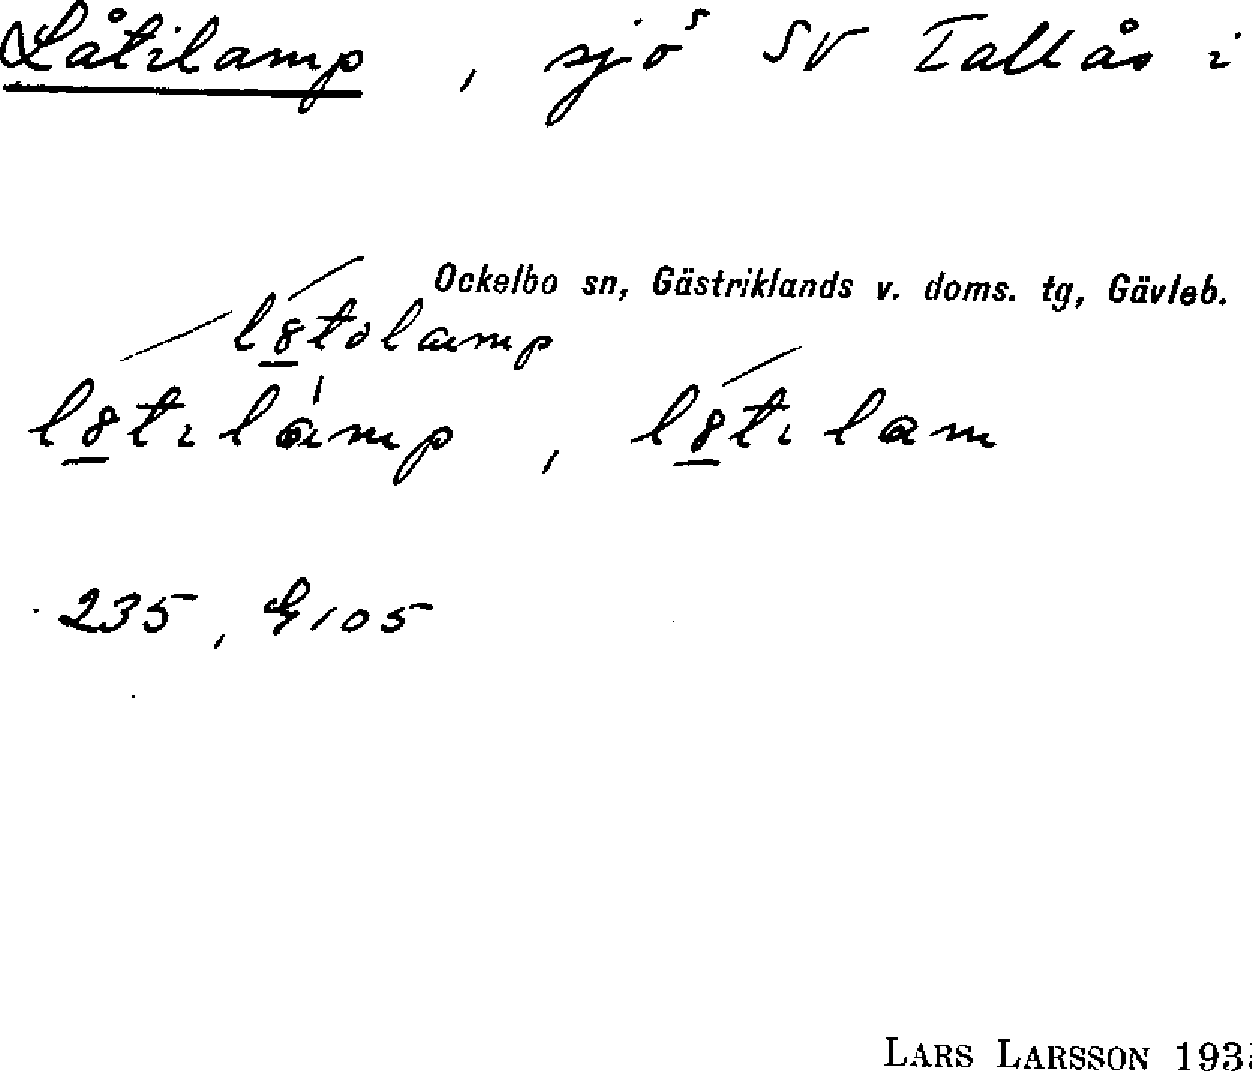 Låtilamp, sjö SV Tallås i
Ockelbo sn, Gästriklands v. doms. tg, Gävleb.
l8tolamp
l8tılamp, l8tılam
235, G105
LARS LARSSON 193